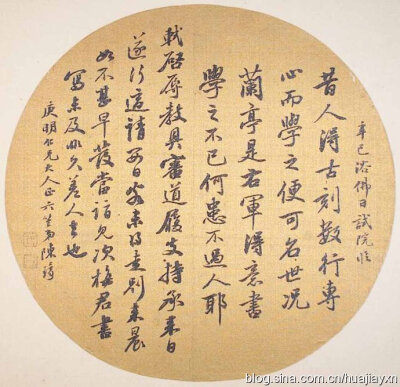 辛巳浴佛日試院臨
昔人得古刻數行專
心而學之便可名世況
蘭亭是右軍得意書
學之不已何患不過人耶
軾啓辱教具審道履支持承來日
遂行適請日告未得走別來晨
如不甚早發當詣見次梅君書
寫未及非久差人去也
庚明仁兄大人正六笙弟陳琦
blog.sina.com.cn/huajiayxn